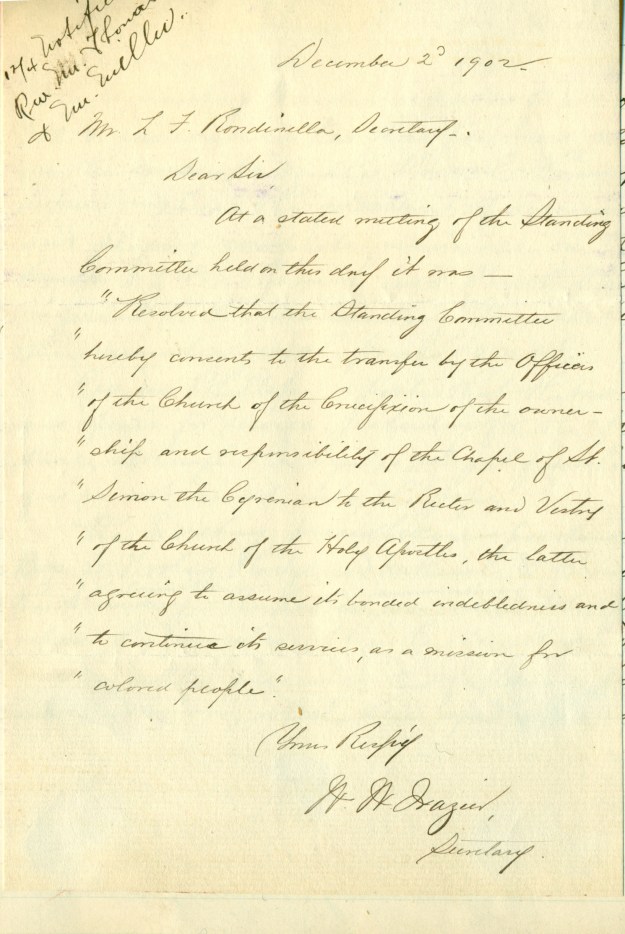 12/4 Notifie
Rev. Mr. Thomas
& Mr. Miller.
December 2d 1902
Mr. L. F. Rondinella, Secretary.
Dear Sir
At a stated meeting of the Standing
Committee held on this day it was —
"Resolved that the Standing Committee
"hereby consents to the transfer by the Officers
"of the Church of the Crucifixion of the owner-
"ship and responsibility of the Chapel of St.
"Simon the Cyrenian to the Rector and Vestry
"of the Church of the Holy Apostles, the latter
"agreeing to assume its bonded indebtedness and
"to continue its services, as a mission for
"colored people".
Yours Respy
W. W. Frazier,
Secretary.